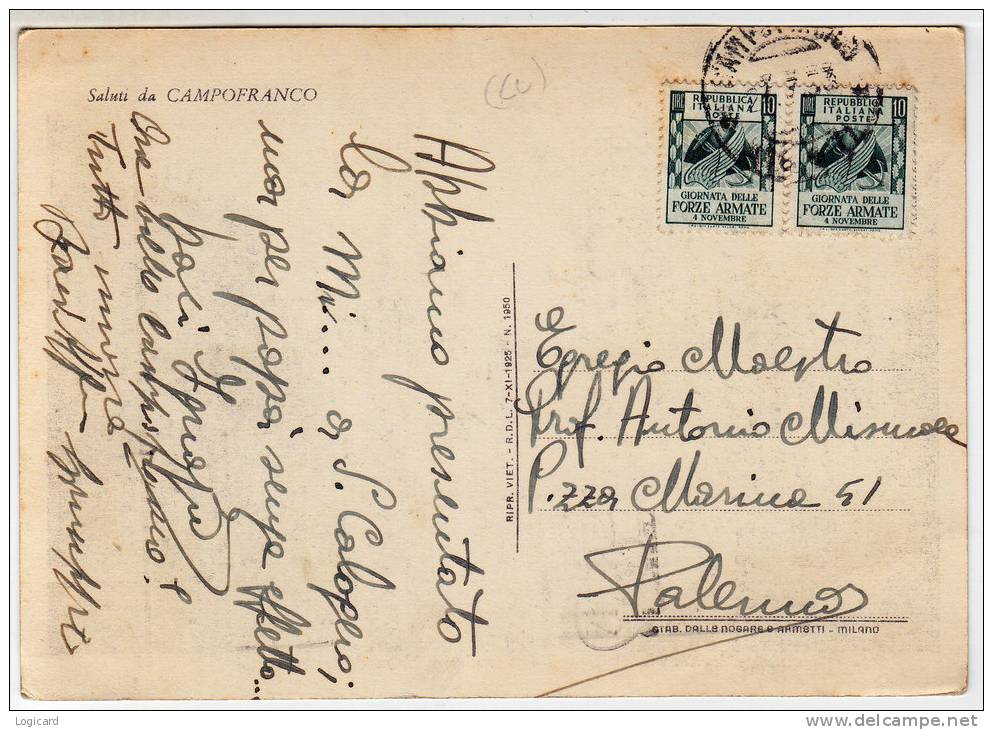 Saluti da CAMPOFRANCO
(CL)
Abbiamo presentato
la Mi... a S. Calogero,
ma per papà senza effetto...
Che bello Campofranco!
Tutta
LIRE
REPUBBLICA
ITALIANA
POSTE
10
GIORNATA DELLE
FORZE ARMATE
4 NOVEMBRE
LIRE
REPUBBLICA
ITALIANA
POSTE
10
GIORNATA DELLE
FORZE ARMATE
4 NOVEMBRE
RIPR. VIET. - R.D.L. 7-XI-1925 - N. 1950
Egregio Maestro
Prof. Antonio
P.zza Marina 51
Palermo
STAB. DALLE NOGARE E ARMETTI - MILANO
Logicard
www.delcampe.net